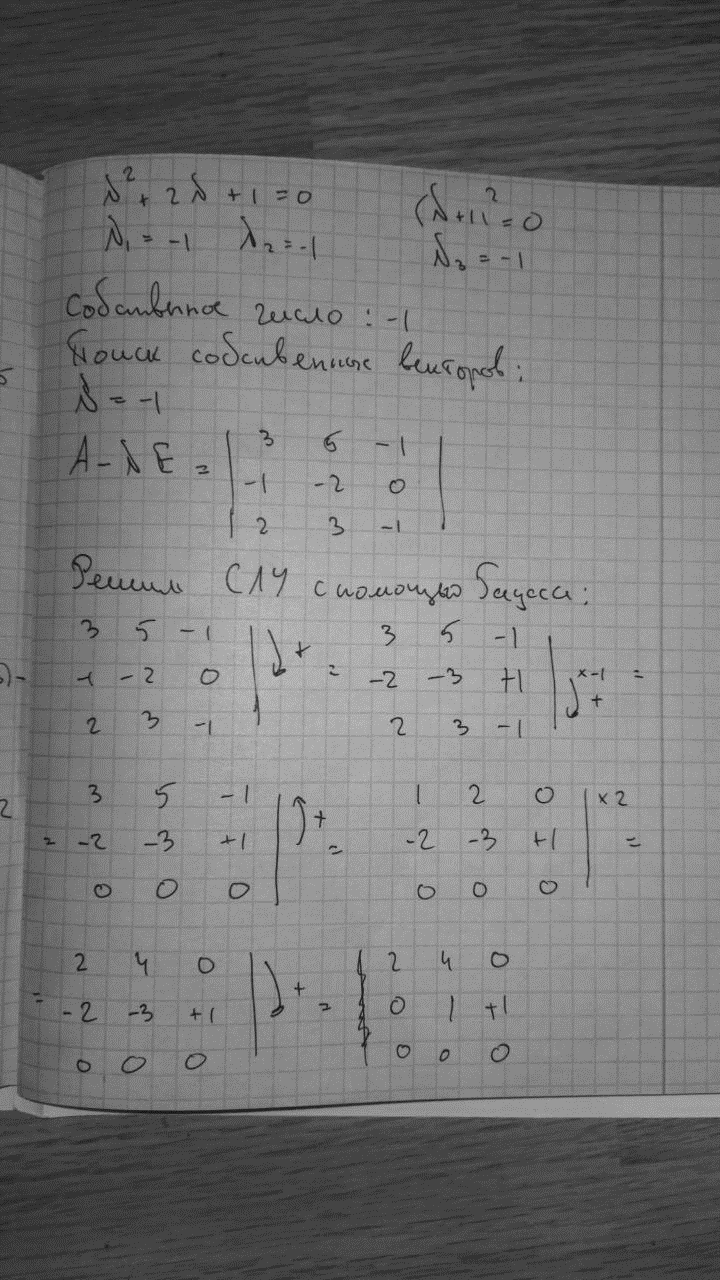 λ² + 2λ + 1 = 0 (λ+1)² = 0
λ₁ = -1 λ₂ = -1 λ₃ = -1
Собственное число: -1
Поиск собственных векторов:
λ = -1
A - λE =
3 5 -1
-1 -2 0
2 3 -1
Решим СЛУ с помощью Гаусса:
3 5 -1 + 3 5 -1
-1 -2 0 = -2 -3 +1 ×-1 + =
2 3 -1 2 3 -1
3 5 -1 + 1 2 0 ×2
= -2 -3 +1 = -2 -3 +1 =
0 0 0 0 0 0
2 4 0 + 2 4 0
= -2 -3 +1 = 0 1 +1
0 0 0 0 0 0